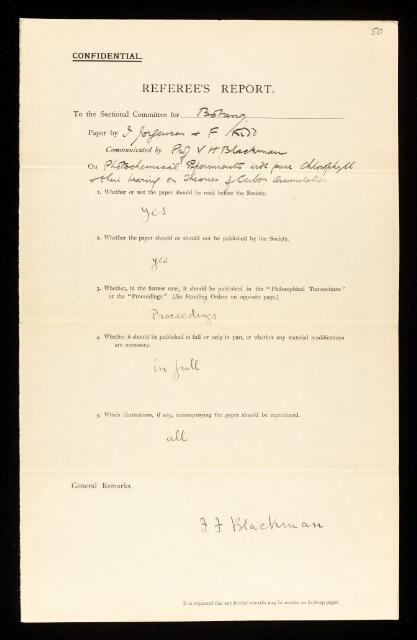 50
CONFIDENTIAL.
REFEREE'S REPORT.
To the Sectional Committee for Botany
Paper by I Jorgensen & F Kidd
Communicated by Prof V H Blackman
On Photochemical Experiments with pure Chlorophyll
& their bearing on Theories of Carbon Assimilation
1. Whether or not the paper should be read before the Society.
Yes
2. Whether the paper should or should not be published by the Society.
yes
3. Whether, in the former case, it should be published in the "Philosophical Transactions"
or the "Proceedings." (See Standing Orders on opposite page.)
Proceedings
4. Whether it should be published in full or only in part, or whether any material modifications
are necessary.
in full
5. Which illustrations, if any, accompanying the paper should be reproduced.
all
General Remarks.
F F Blackman
It is requested that any further remarks may be written on foolscap paper.